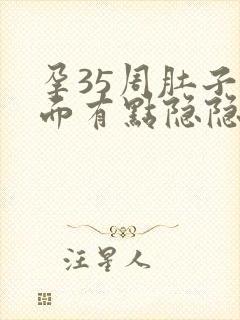 孕35周肚子
而有點隐隐
汪星人